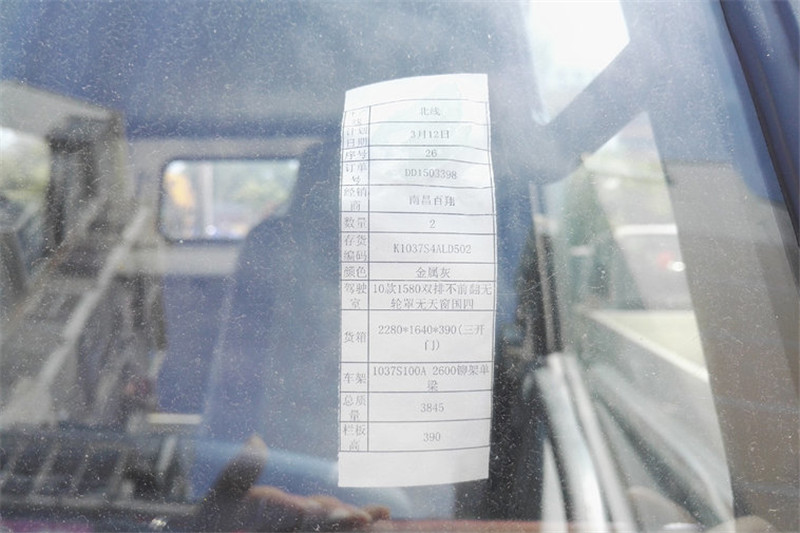 北线
计划日期 3月12日
序号 26
订单号 DD1503398
经销商 南昌百翔
数量 2
存货编码 K1037S4ALD502
颜色 金属灰
驾驶室 10款1580双排不前翻无
轮罩无天窗国四
货箱 2280*1640*390(三开
门)
车架 1037S100A 2600铆架单
梁
总质量 3845
栏板高 390